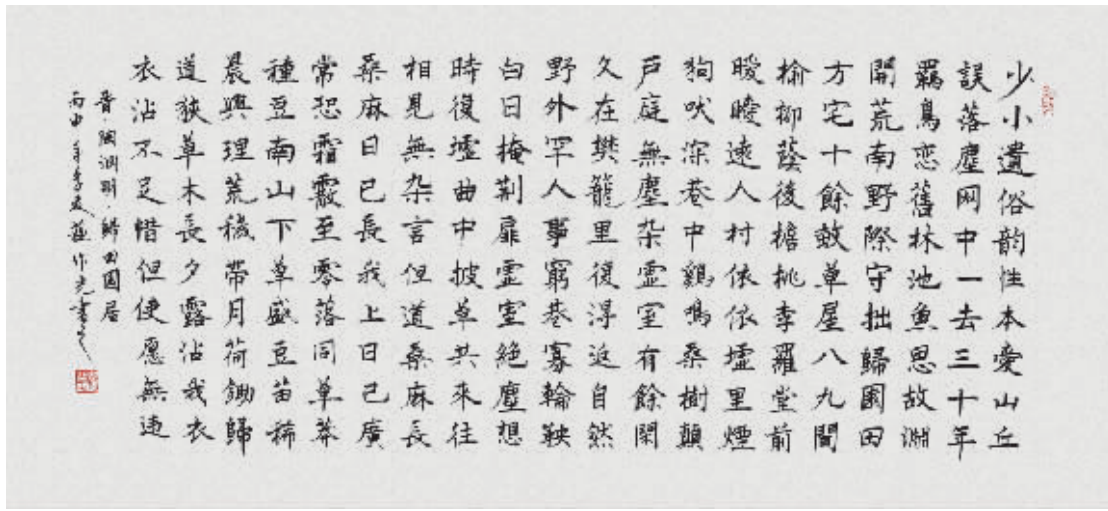 少小遺俗韵性本愛山丘
誤落塵网中一去三十年
羈鳥恋舊林池魚思故淵
開荒南野際守拙歸園田
方宅十餘畝草屋八九間
榆柳蔭後檐桃李羅堂前
曖曖遠人村依依墟里煙
狗吠深巷中鷄鳴桑樹顛
戶庭無塵杂霊室有餘閑
久在樊籠里復得返自然
野外罕人事窮巷寡輪鞅
白日掩荆扉霊室絕塵想
時復墟曲中披草共來往
相見無杂言但道桑麻長
桑麻日已長我上日已廣
常恐霜霰至零落同草莽
種豆南山下草盛豆苗稀
晨興理荒穢帶月荷鋤歸
道狹草木長夕露沾我衣
衣沾不足惜但使愿無違
晋陶淵明歸田園居
丙申年季夏作光書之